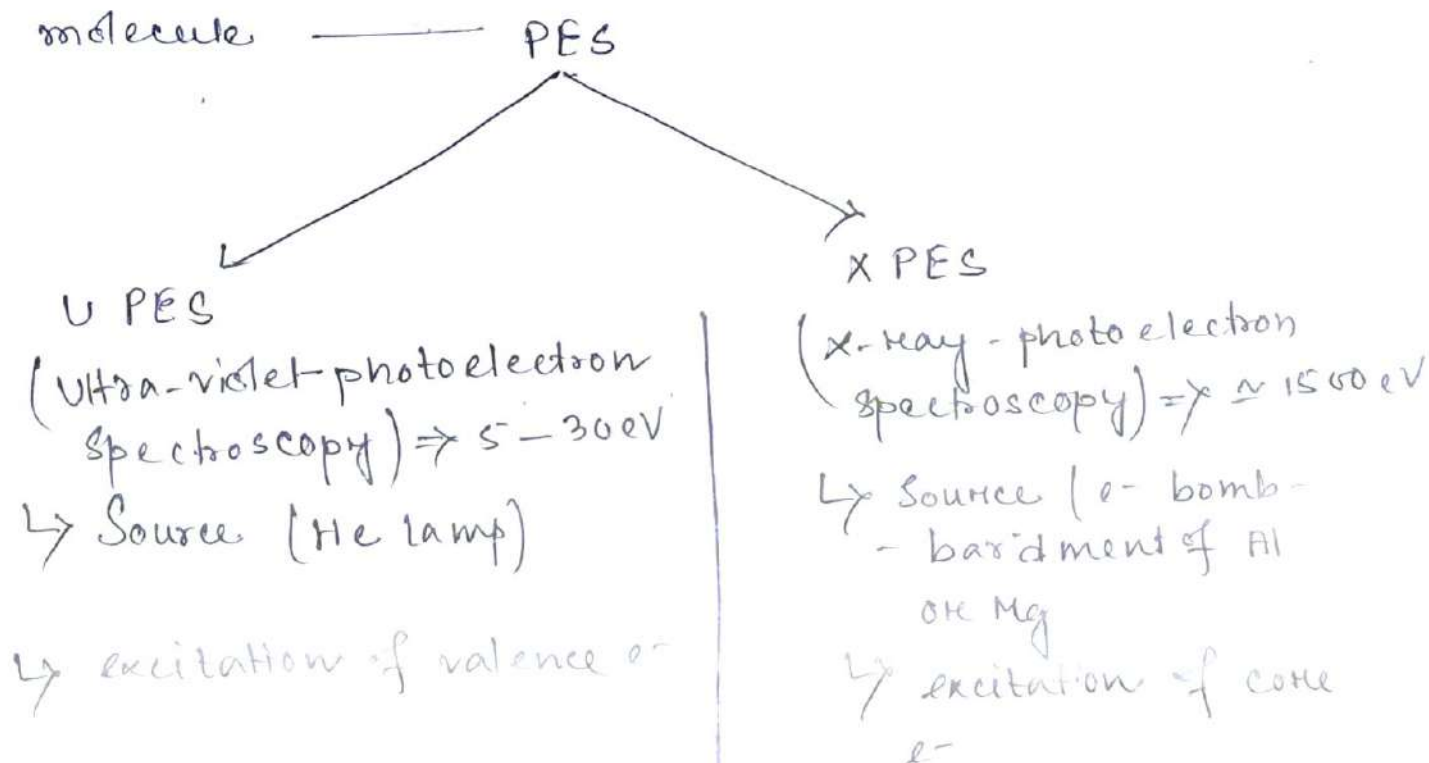 molecule —— PES
U PES
(Ultra-violet-photoelectron
spectroscopy) ⇒ 5 – 30 eV
↳ Source (He lamp)
↳ excitation of valence e-
X PES
(X-ray - photo electron
spectroscopy) ⇒ ≃ 1500 eV
↳ Source (e- bomb-
- bardment of Al
or Mg
↳ excitation of core
e-